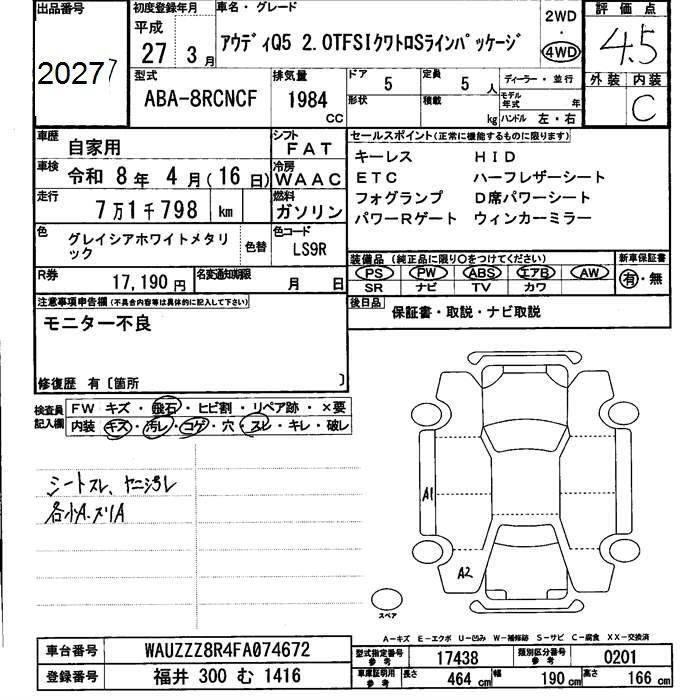 出品番号 初度登録年月 車名・グレード 評価点
平成 27 3月 アウディQ5 2.0TFSIクワトロSラインパッケージ 2WD・4WD 4.5
20277
型式 排気量 ドア 定員 ディーラー・並行 外装 内装
ABA-8RCNCF 1984 cc 5 5人 C
形状 積載 kg モデル年式 年 ハンドル 左・右
車歴 自家用 シフト FAT セールスポイント(正常に機能するものに限ります)
車検 令和 8年 4月(16日) 冷房 WAAC
キーレス HID
ETC ハーフレザーシート
走行 7万1千798 km 燃料 ガソリン
フォグランプ D席パワーシート
パワーRゲート ウィンカーミラー
色 グレイシアホワイトメタリック 色替 色コード LS9R
装備品(純正品に限り○をつけてください) 新車保証書
PS PW ABS エアB AW 有・無
SR ナビ TV カワ
R券 17,190円 名変通知期限 月 日
後日品 保証書・取説・ナビ取説
注意事項申告欄(不具合内容等は具体的に記入して下さい)
モニター不良
修復歴 有〔箇所 〕
検査員記入欄
FW キズ・飛石・ヒビ割・リペア跡・×要
内装 キズ・汚レ・コゲ・穴・スレ・キレ・破レ
シートスレ、ヤニ汚レ
各小A.スリA
A1
A2
スペア
A-キズ E-エクボ U-凹み W-補修跡 S-サビ C-腐食 XX-交換済
車台番号 WAUZZZ8R4FA074672 型式指定番号参考 17438 類別区分番号参考 0201
登録番号 福井 300 む 1416 車庫証明用参考 長さ 464 cm 幅 190 cm 高さ 166 cm